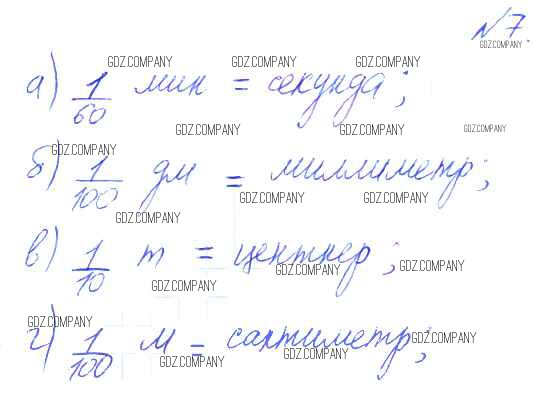 №7.
GDZ.COMPANY
GDZ.COMPANY GDZ.COMPANY GDZ.COMPANY
а) 1/60 мин = секунда;
GDZ.COMPANY GDZ.COMPANY
GDZ.COMPANY
б) 1/100 дм = миллиметр;
GDZ.COMPANY GDZ.COMPANY
GDZ.COMPANY
в) 1/10 т = центнер;
GDZ.COMPANY GDZ.COMPANY
GDZ.COMPANY
GDZ.COMPANY
г) 1/100 м = сантиметр;
GDZ.COMPANY
GDZ.COMPANY GDZ.COMPANY